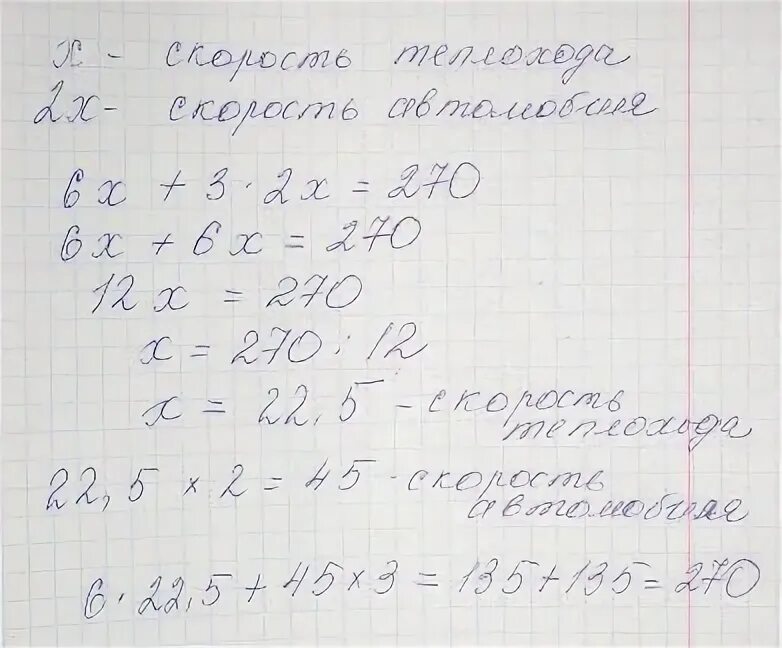 x - скорость теплохода
2x - скорость автомобиля
6x + 3 · 2x = 270
6x + 6x = 270
12x = 270
x = 270 : 12
x = 22,5 - скорость
теплохода
22,5 × 2 = 45 - скорость
автомобиля
6 · 22,5 + 45 × 3 = 135 + 135 = 270